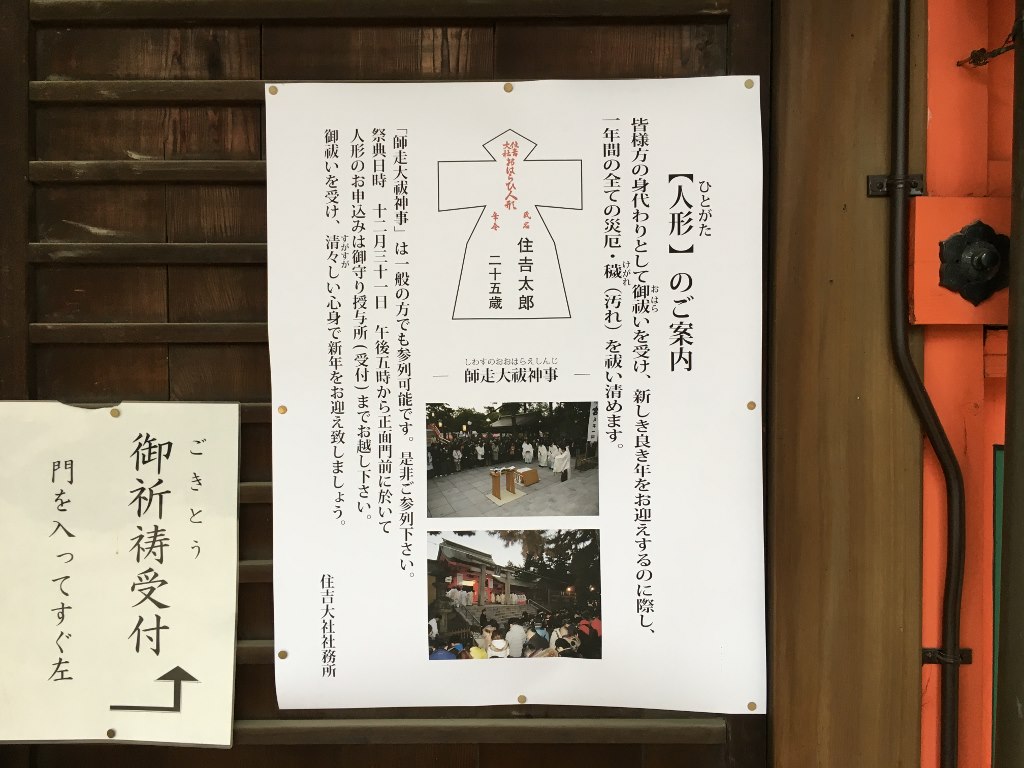 【人形】のご案内
ひとがた
皆様方の身代わりとして御祓いを受け、新しき良き年をお迎えするのに際し、
おはら
一年間の全ての災厄・穢(汚れ)を祓い清めます。
けがれ
住吉
大社
おはらひ人形
氏名
住吉太郎
年令
二十五歳
しわすのおおはらえしんじ
師走大祓神事
「師走大祓神事」は一般の方でも参列可能です。是非ご参列下さい。
祭典日時 十二月三十一日 午後五時から正面門前に於いて
人形のお申込みは御守り授与所(受付)までお越し下さい。
御祓いを受け、清々しい心身で新年をお迎え致しましょう。
すがすが
住吉大社社務所
ごきとう
御祈祷受付
門を入ってすぐ左